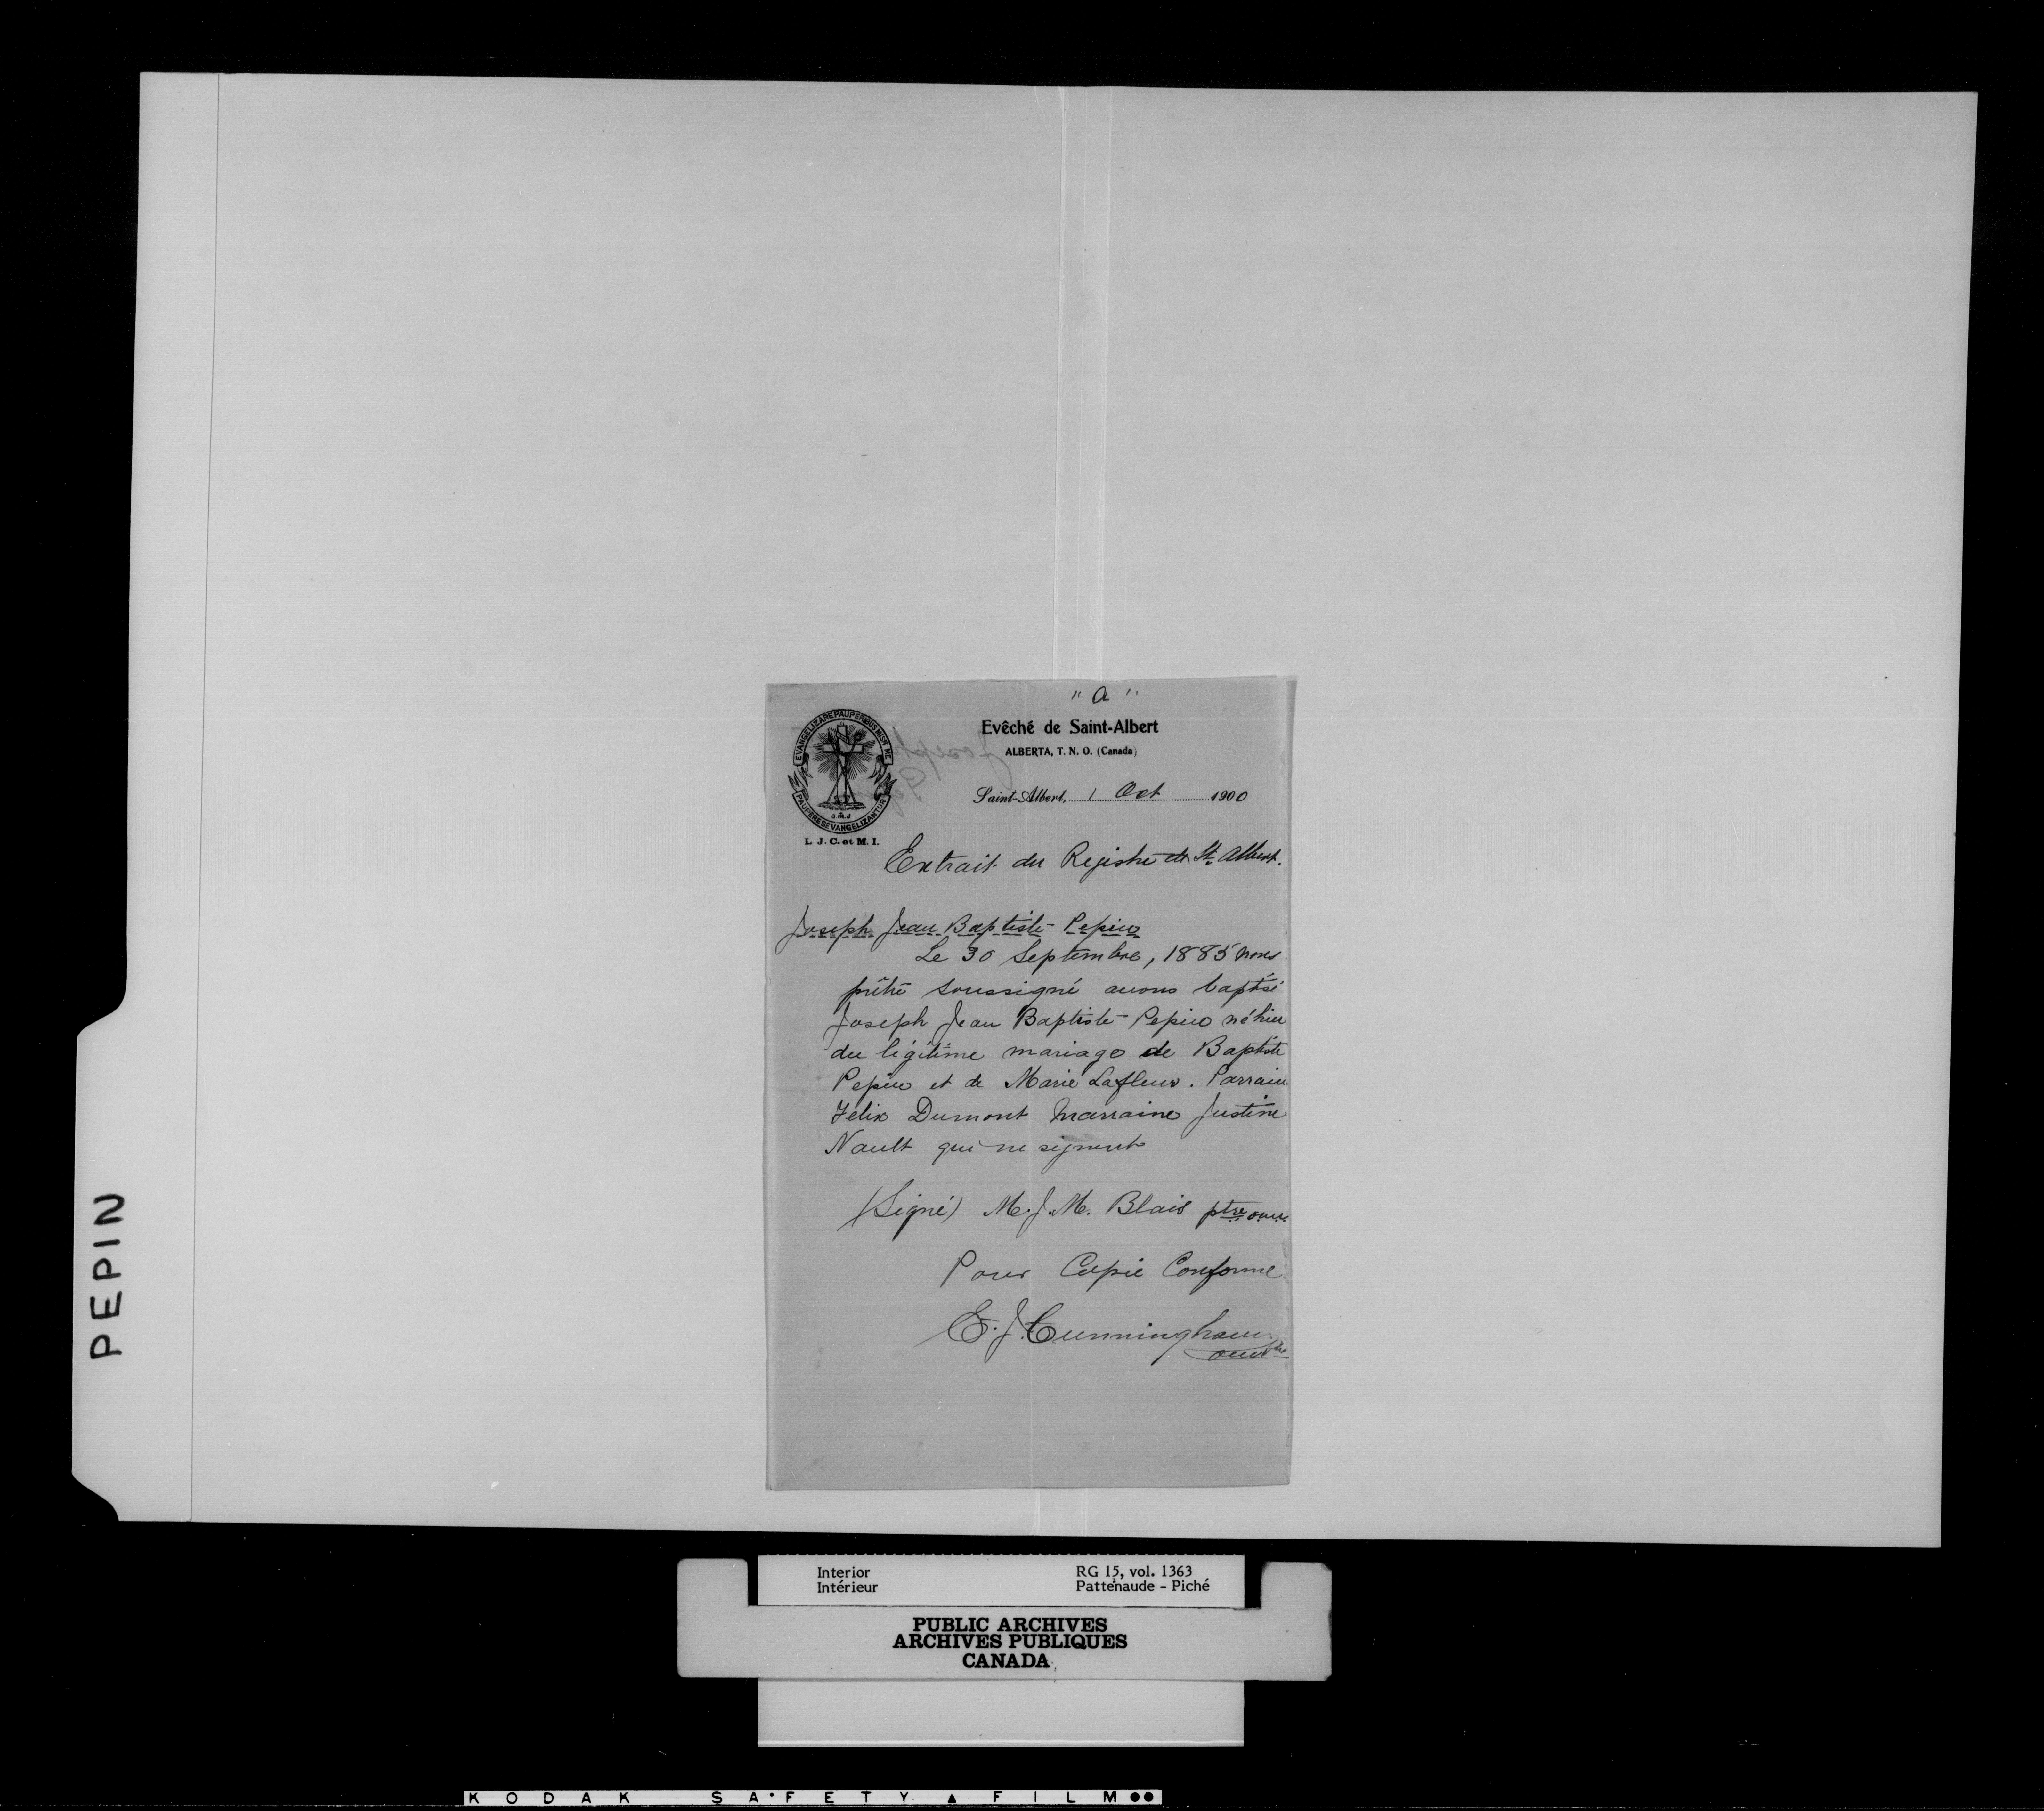 " a "
EVANGELIZARE PAUPERIBUS MISIT ME
PAUPERES EVANGELIZANTUR
O.M.J
L. J. C. et M. I.
Evêché de Saint-Albert
ALBERTA, T. N. O. (Canada)
Saint-Albert, 1 Oct 1900
Extrait du Registre de St. Albert.
Joseph Jean Baptiste Pepin
Le 30 Septembre, 1885 nous
prêtre soussigné avons baptisé
Joseph Jean Baptiste Pepin né hier
du légitime mariage de Baptiste
Pepin et de Marie Lafleur. Parrain
Felix Dumont Marraine Justine
Nault qui ne signent
(Signé) M. J. M. Blais ptre omi
Pour Copie Conforme
E. J. Cunningham
omi ptre
PEPIN
Interior
Intérieur
RG 15, vol. 1363
Pattenaude - Piché
PUBLIC ARCHIVES
ARCHIVES PUBLIQUES
CANADA
KODAK SAFETY FILM